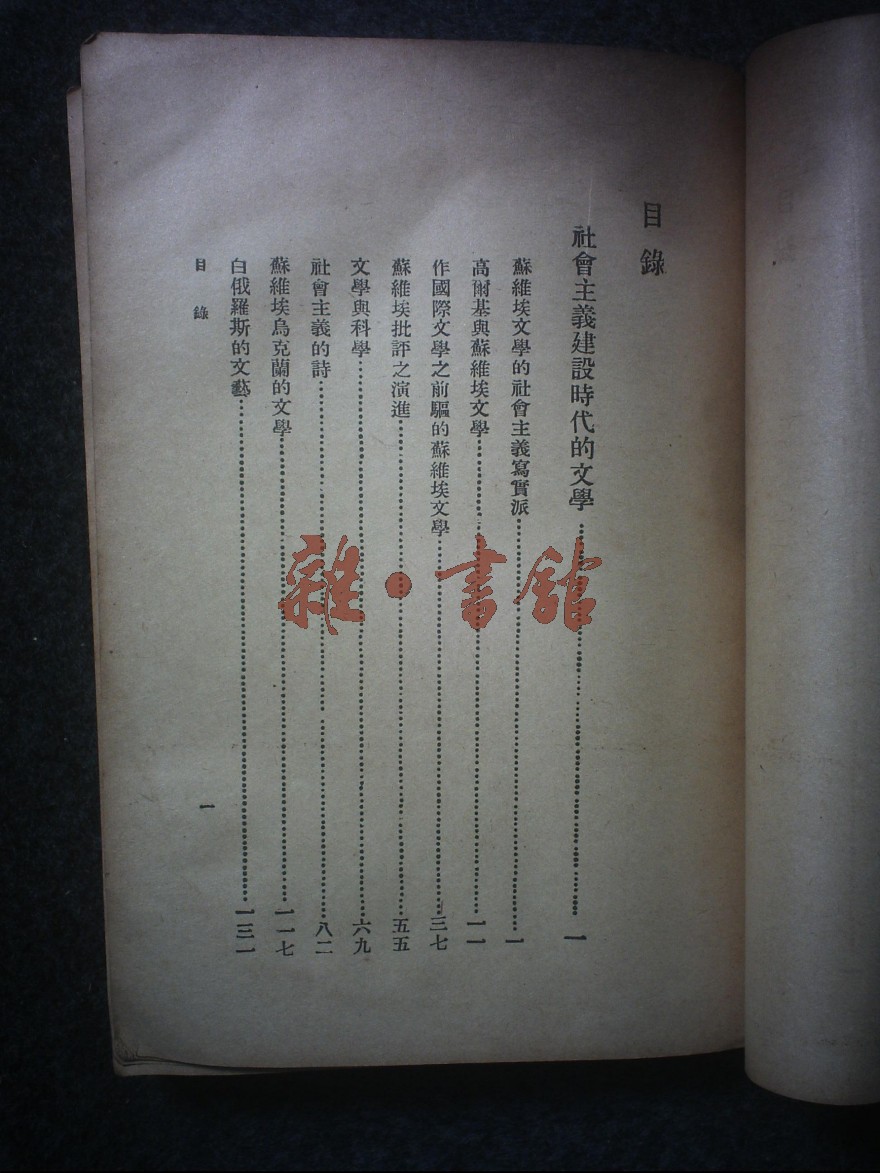 目錄
社會主義建設時代的文學 一
蘇維埃文學的社會主義寫實派 一
高爾基與蘇維埃文學 一一
作國際文學之前驅的蘇維埃文學 三七
蘇維埃批評之演進 五五
文學與科學 六九
社會主義的詩 八二
蘇維埃烏克蘭的文學 一一七
白俄羅斯的文藝 一三一
目錄
一
雜·書館